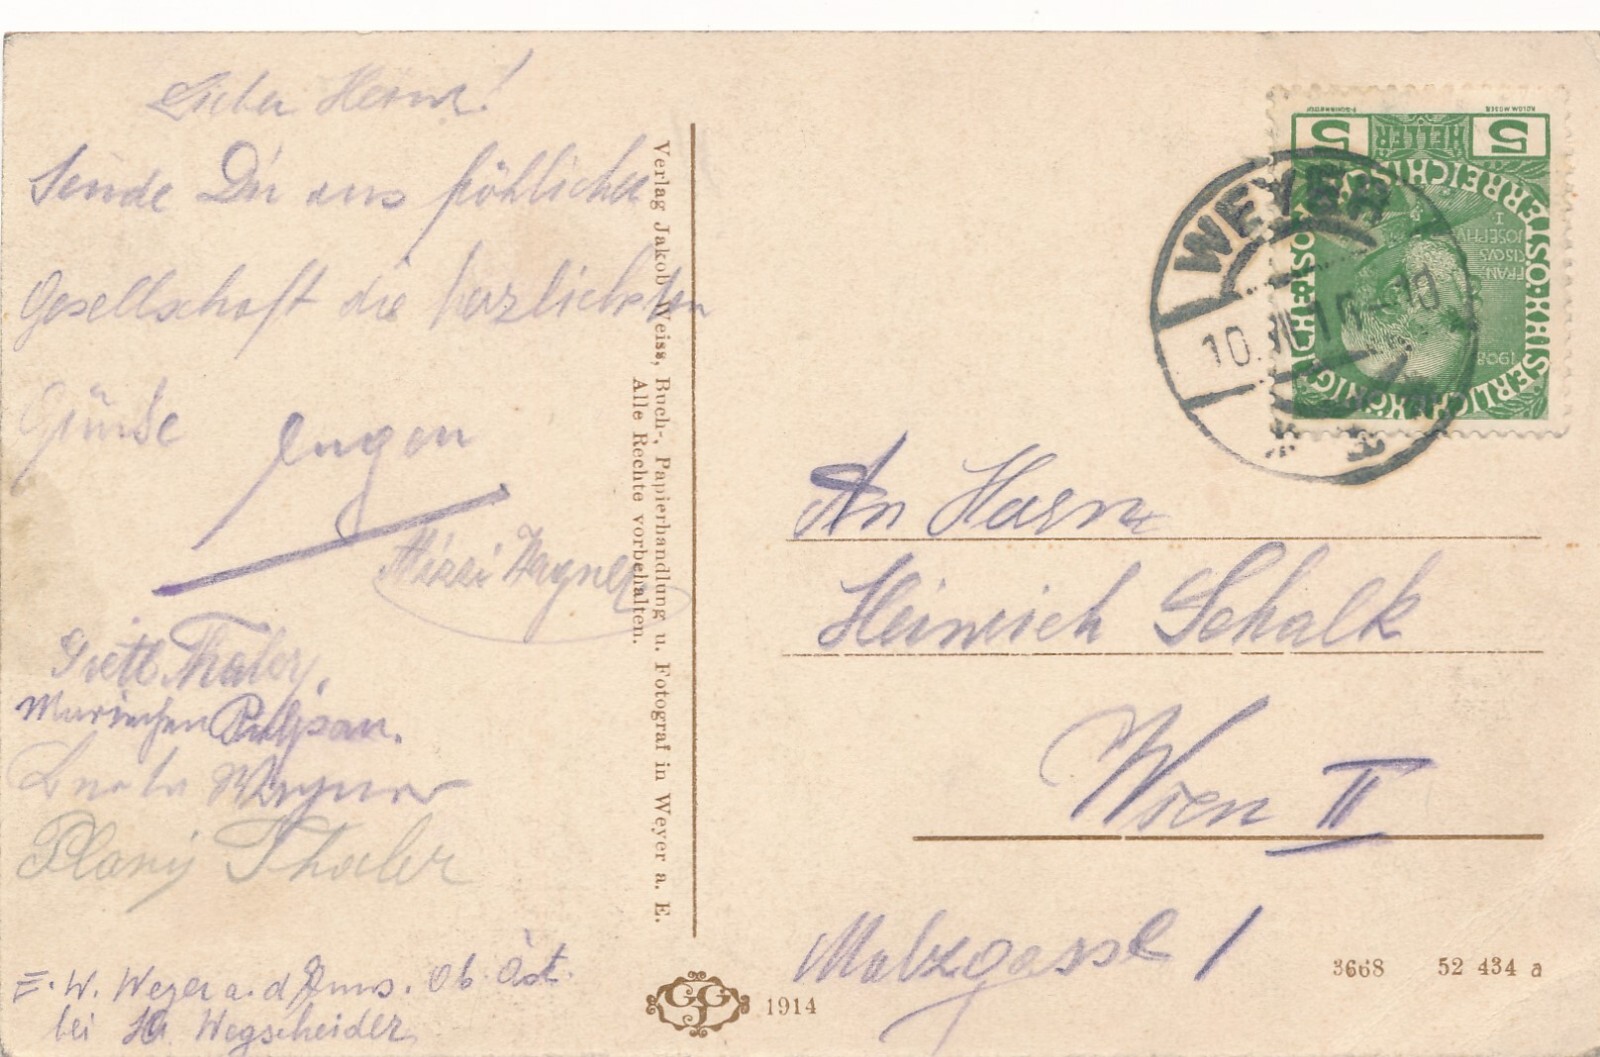 Lieber Heini!
Sende Dir aus fröhlicher
Gesellschaft die herzlichsten
Grüße Eugen
Mizzi Wagner
Gretl Thaler,
Mariechen
Wagner
Thaler
E. W. Weyer a. d. Enns. Ob. Öst.
bei Wegscheider
Verlag Jakob Weiss, Buch-, Papierhandlung u. Fotograf in Weyer a. E.
Alle Rechte vorbehalten.
GGJ 1914
5 HELLER 5
KAISERLICHE KÖNIGLICHE ÖSTERREICHISCHE POST
FRANCISCUS JOSEPHUS I
1908
KOLOM. MOSER
F. SCHIRNBÖCK
WEYER
10.
An Herrn
Heinrich Schalk
Wien II
Malzgasse 1
3668 52 434 a